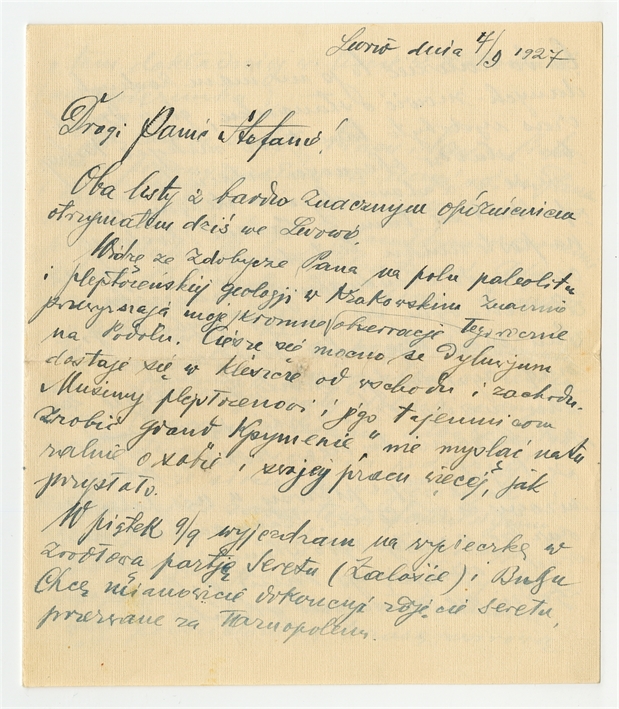 Lwów dnia 4/9 1927
Drogi Panie Stefanie!
Oba listy z bardzo znacznym opóźnieniem
otrzymałem dziś we Lwowie
Widzę ze zdobycze Pana na polu paleolitu
i plejstoceńskiej geologji w Krakowskim znacznie
przewyższają moje skromne obserwacje tegoroczne
na Podolu. Cieszę się mocno ze dyluwjum
dostaje się w kleszcze od wschodu i zachodu.
Musimy plejstocenowi i jego tajemnicom
zrobić „grand" nie myśląc natu
ralnie o sobie i swojej pracy więcej, jak
przystało.
W piątek 9/9 wyjeżdżam na wycieczkę w
źródłową partję Seretu (Załośce) i Bugu
Chcę mianowicie dokończyć zdjęcie Seretu,
przerwane za Tarnopolem.